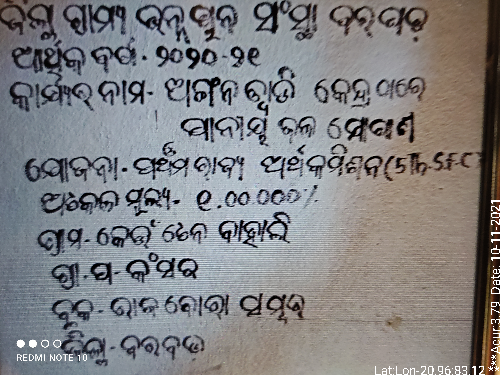 ଜିଲ୍ଲା ଗ୍ରାମ୍ୟ ଉନ୍ନୟନ ସଂସ୍ଥା ବରଗଡ଼
ଆର୍ଥିକ ବର୍ଷ - ୨୦୨୦-୨୧
କାର୍ଯ୍ୟର ନାମ - ଅଙ୍ଗନୱାଡି କେନ୍ଦ୍ର ଠାରେ
ପାନୀୟ ଜଳ ଯୋଗାଣ
ଯୋଜନା - ପଞ୍ଚମ ରାଜ୍ୟ ଅର୍ଥ କମିଶନ (5Th-SFC)
ଅଟକଳ ମୂଲ୍ୟ - ୧.00.000/.
ଗ୍ରାମ - କେଉଁଟେନ ବାହାଲି
ଗ୍ରା.ପ - କଂସର
ବ୍ଲକ - ରାଜବୋରା ସମ୍ବର
ଜିଲ୍ଲା - ବରଗଡ
REDMI NOTE 10
Lat:Lon-20.96:83.12
***Acur:3.79 Date: 10-11-2021